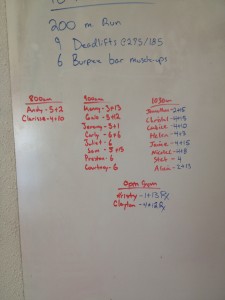 200 m Run
9 Deadlifts @275/185
6 Burpee bar muscle-ups
800am
Andy - 5+2
Clarissa - 4+10
900am
Gaic - 5+12
Jeremy - 5+1
Carly - 6+6
Juliet - 6
Sam - 5+15
Preston - 6
Courtney - 6
1030am
Jonathan - 2+15
Christal - 4+13
Candice - 4+10
Helen - 4+3
Janice - 4+15
Nicolas - 4+8
Steb - 4
Alain - 2+13
Kristy - 1+13 Rx
Clayton - 4+12 Rx